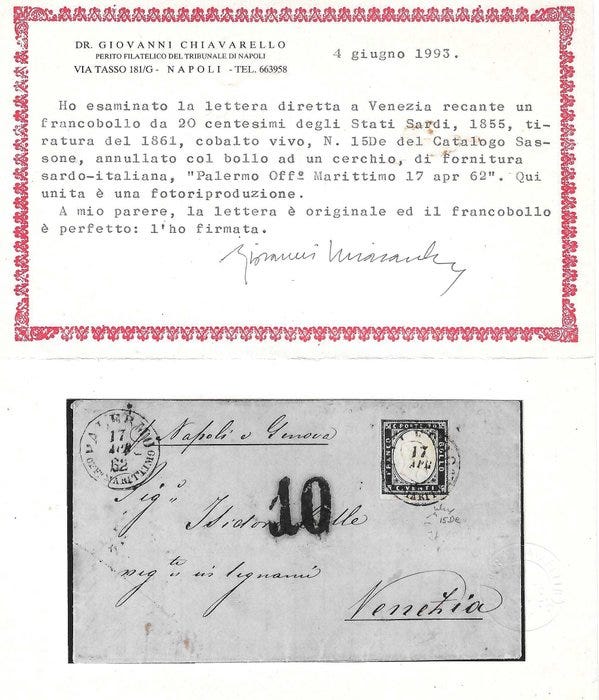 DR. GIOVANNI CHIAVARELLO
PERITO FILATELICO DEL TRIBUNALE DI NAPOLI
VIA TASSO 181/G - NAPOLI - TEL. 663958
4 giugno 1993.
Ho esaminato la lettera diretta a Venezia recante un
francobollo da 20 centesimi degli Stati Sardi, 1855, ti-
ratura del 1861, cobalto vivo, N. 15De del Catalogo Sas-
sone, annullato col bollo ad un cerchio, di fornitura
sardo-italiana, "Palermo Offº Marittimo 17 apr 62". Qui
unita è una fotoriproduzione.
A mio parere, la lettera è originale ed il francobollo
è perfetto: l'ho firmata.
Giovanni
PALERMO
17
APR
62
MARITTIMO
Napoli e Genova
C. POSTE 20
FRANCO
BOLLO
C. VENTI
17
APR
15De
Sigr
10
Isidoro
negte in legnami
Venezia